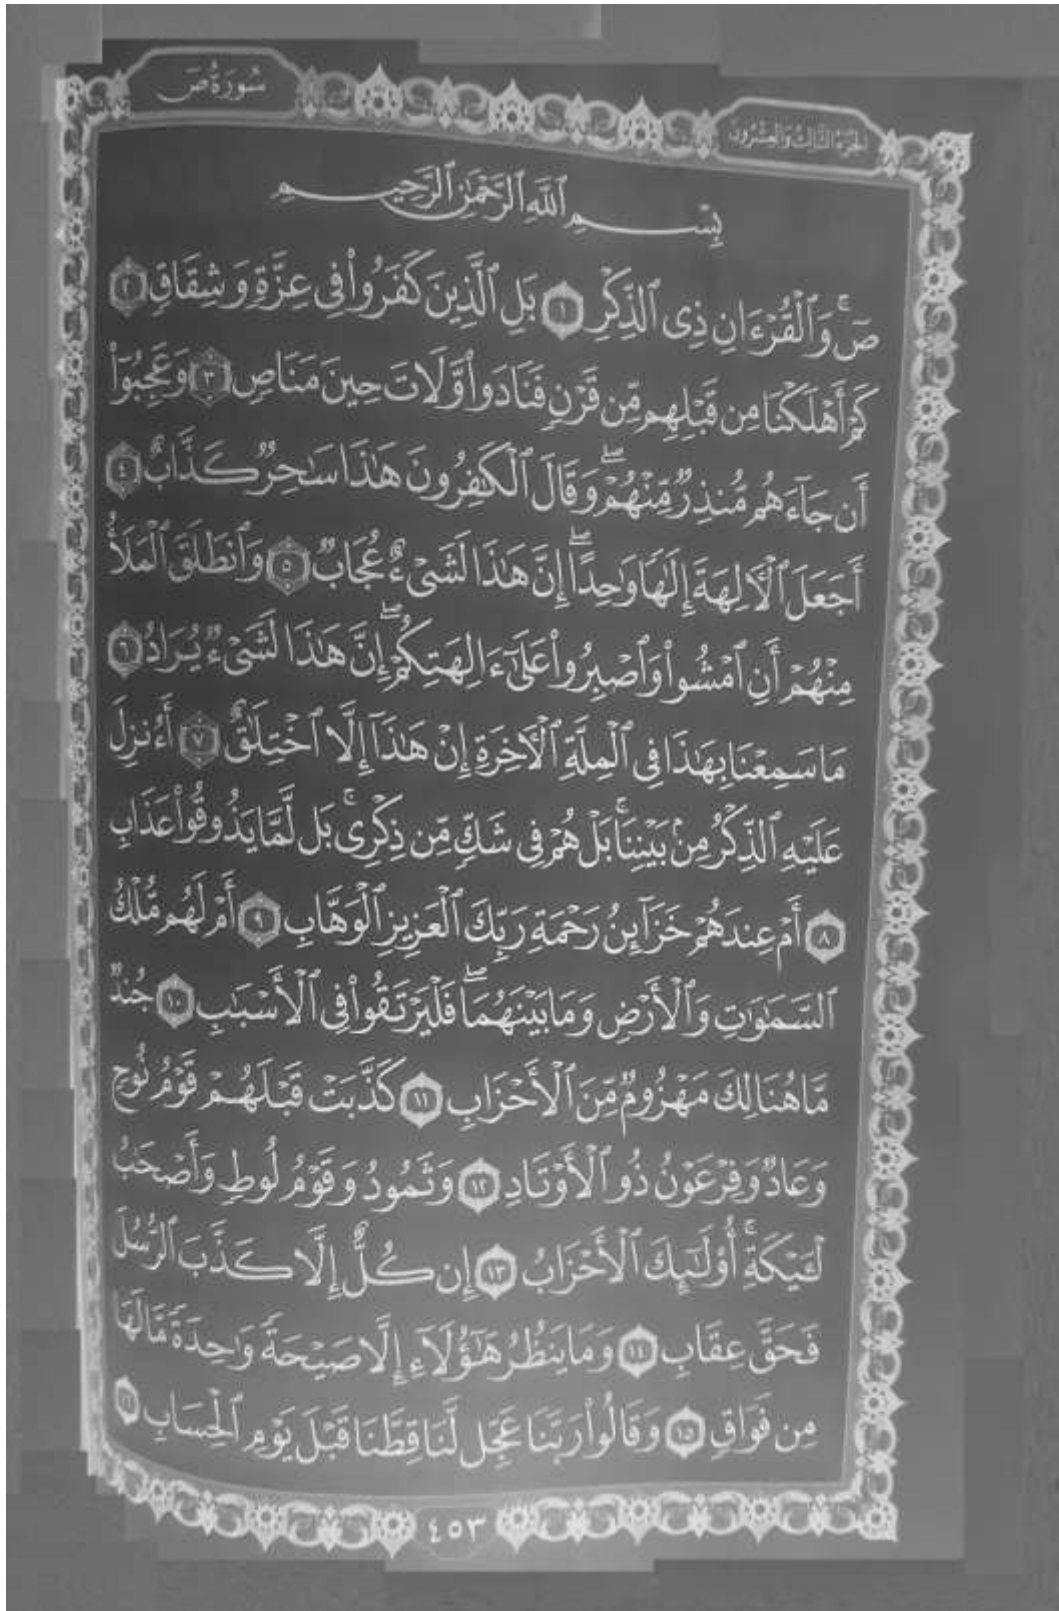 سُورَةُ صٓ
الجُزْءُ الثَّالِثُ وَالْعِشْرُونَ
بِسْمِ ٱللَّهِ ٱلرَّحْمَٰنِ ٱلرَّحِيمِ
صٓۚ وَٱلْقُرْءَانِ ذِى ٱلذِّكْرِ ١ بَلِ ٱلَّذِينَ كَفَرُوا۟ فِى عِزَّةٍ وَشِقَاقٍ ٢
كَمْ أَهْلَكْنَا مِن قَبْلِهِم مِّن قَرْنٍ فَنَادَوا۟ وَّلَاتَ حِينَ مَنَاصٍ ٣ وَعَجِبُوٓا۟
أَن جَآءَهُم مُّنذِرٌ مِّنْهُمْۖ وَقَالَ ٱلْكَٰفِرُونَ هَٰذَا سَٰحِرٌ كَذَّابٌ ٤
أَجَعَلَ ٱلْءَالِهَةَ إِلَٰهًا وَٰحِدًاۖ إِنَّ هَٰذَا لَشَىْءٌ عُجَابٌ ٥ وَٱنطَلَقَ ٱلْمَلَأُ
مِنْهُمْ أَنِ ٱمْشُوا۟ وَٱصْبِرُوا۟ عَلَىٰٓ ءَالِهَتِكُمْۖ إِنَّ هَٰذَا لَشَىْءٌ يُرَادُ ٦
مَا سَمِعْنَا بِهَٰذَا فِى ٱلْمِلَّةِ ٱلْءَاخِرَةِ إِنْ هَٰذَآ إِلَّا ٱخْتِلَٰقٌ ٧ أَءُنزِلَ
عَلَيْهِ ٱلذِّكْرُ مِنۢ بَيْنِنَاۚ بَلْ هُمْ فِى شَكٍّ مِّن ذِكْرِىۚ بَل لَّمَّا يَذُوقُوا۟ عَذَابِ
٨ أَمْ عِندَهُمْ خَزَآئِنُ رَحْمَةِ رَبِّكَ ٱلْعَزِيزِ ٱلْوَهَّابِ ٩ أَمْ لَهُم مُّلْكُ
ٱلسَّمَٰوَٰتِ وَٱلْأَرْضِ وَمَا بَيْنَهُمَاۖ فَلْيَرْتَقُوا۟ فِى ٱلْأَسْبَٰبِ ١٠ جُندٌ
مَّا هُنَالِكَ مَهْزُومٌ مِّنَ ٱلْأَحْزَابِ ١١ كَذَّبَتْ قَبْلَهُمْ قَوْمُ نُوحٍ
وَعَادٌ وَفِرْعَوْنُ ذُو ٱلْأَوْتَادِ ١٢ وَثَمُودُ وَقَوْمُ لُوطٍ وَأَصْحَٰبُ
لْـَٔيْكَةِۚ أُو۟لَٰٓئِكَ ٱلْأَحْزَابُ ١٣ إِن كُلٌّ إِلَّا كَذَّبَ ٱلرُّسُلَ
فَحَقَّ عِقَابِ ١٤ وَمَا يَنظُرُ هَٰٓؤُلَآءِ إِلَّا صَيْحَةً وَٰحِدَةً مَّا لَهَا
مِن فَوَاقٍ ١٥ وَقَالُوا۟ رَبَّنَا عَجِّل لَّنَا قِطَّنَا قَبْلَ يَوْمِ ٱلْحِسَابِ ١٦
٤٥٣